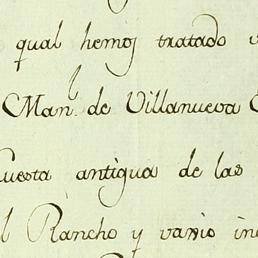 qual hemos tratado
Man.l de Villanueva
uesta antigua de las
l Rancho y vario in